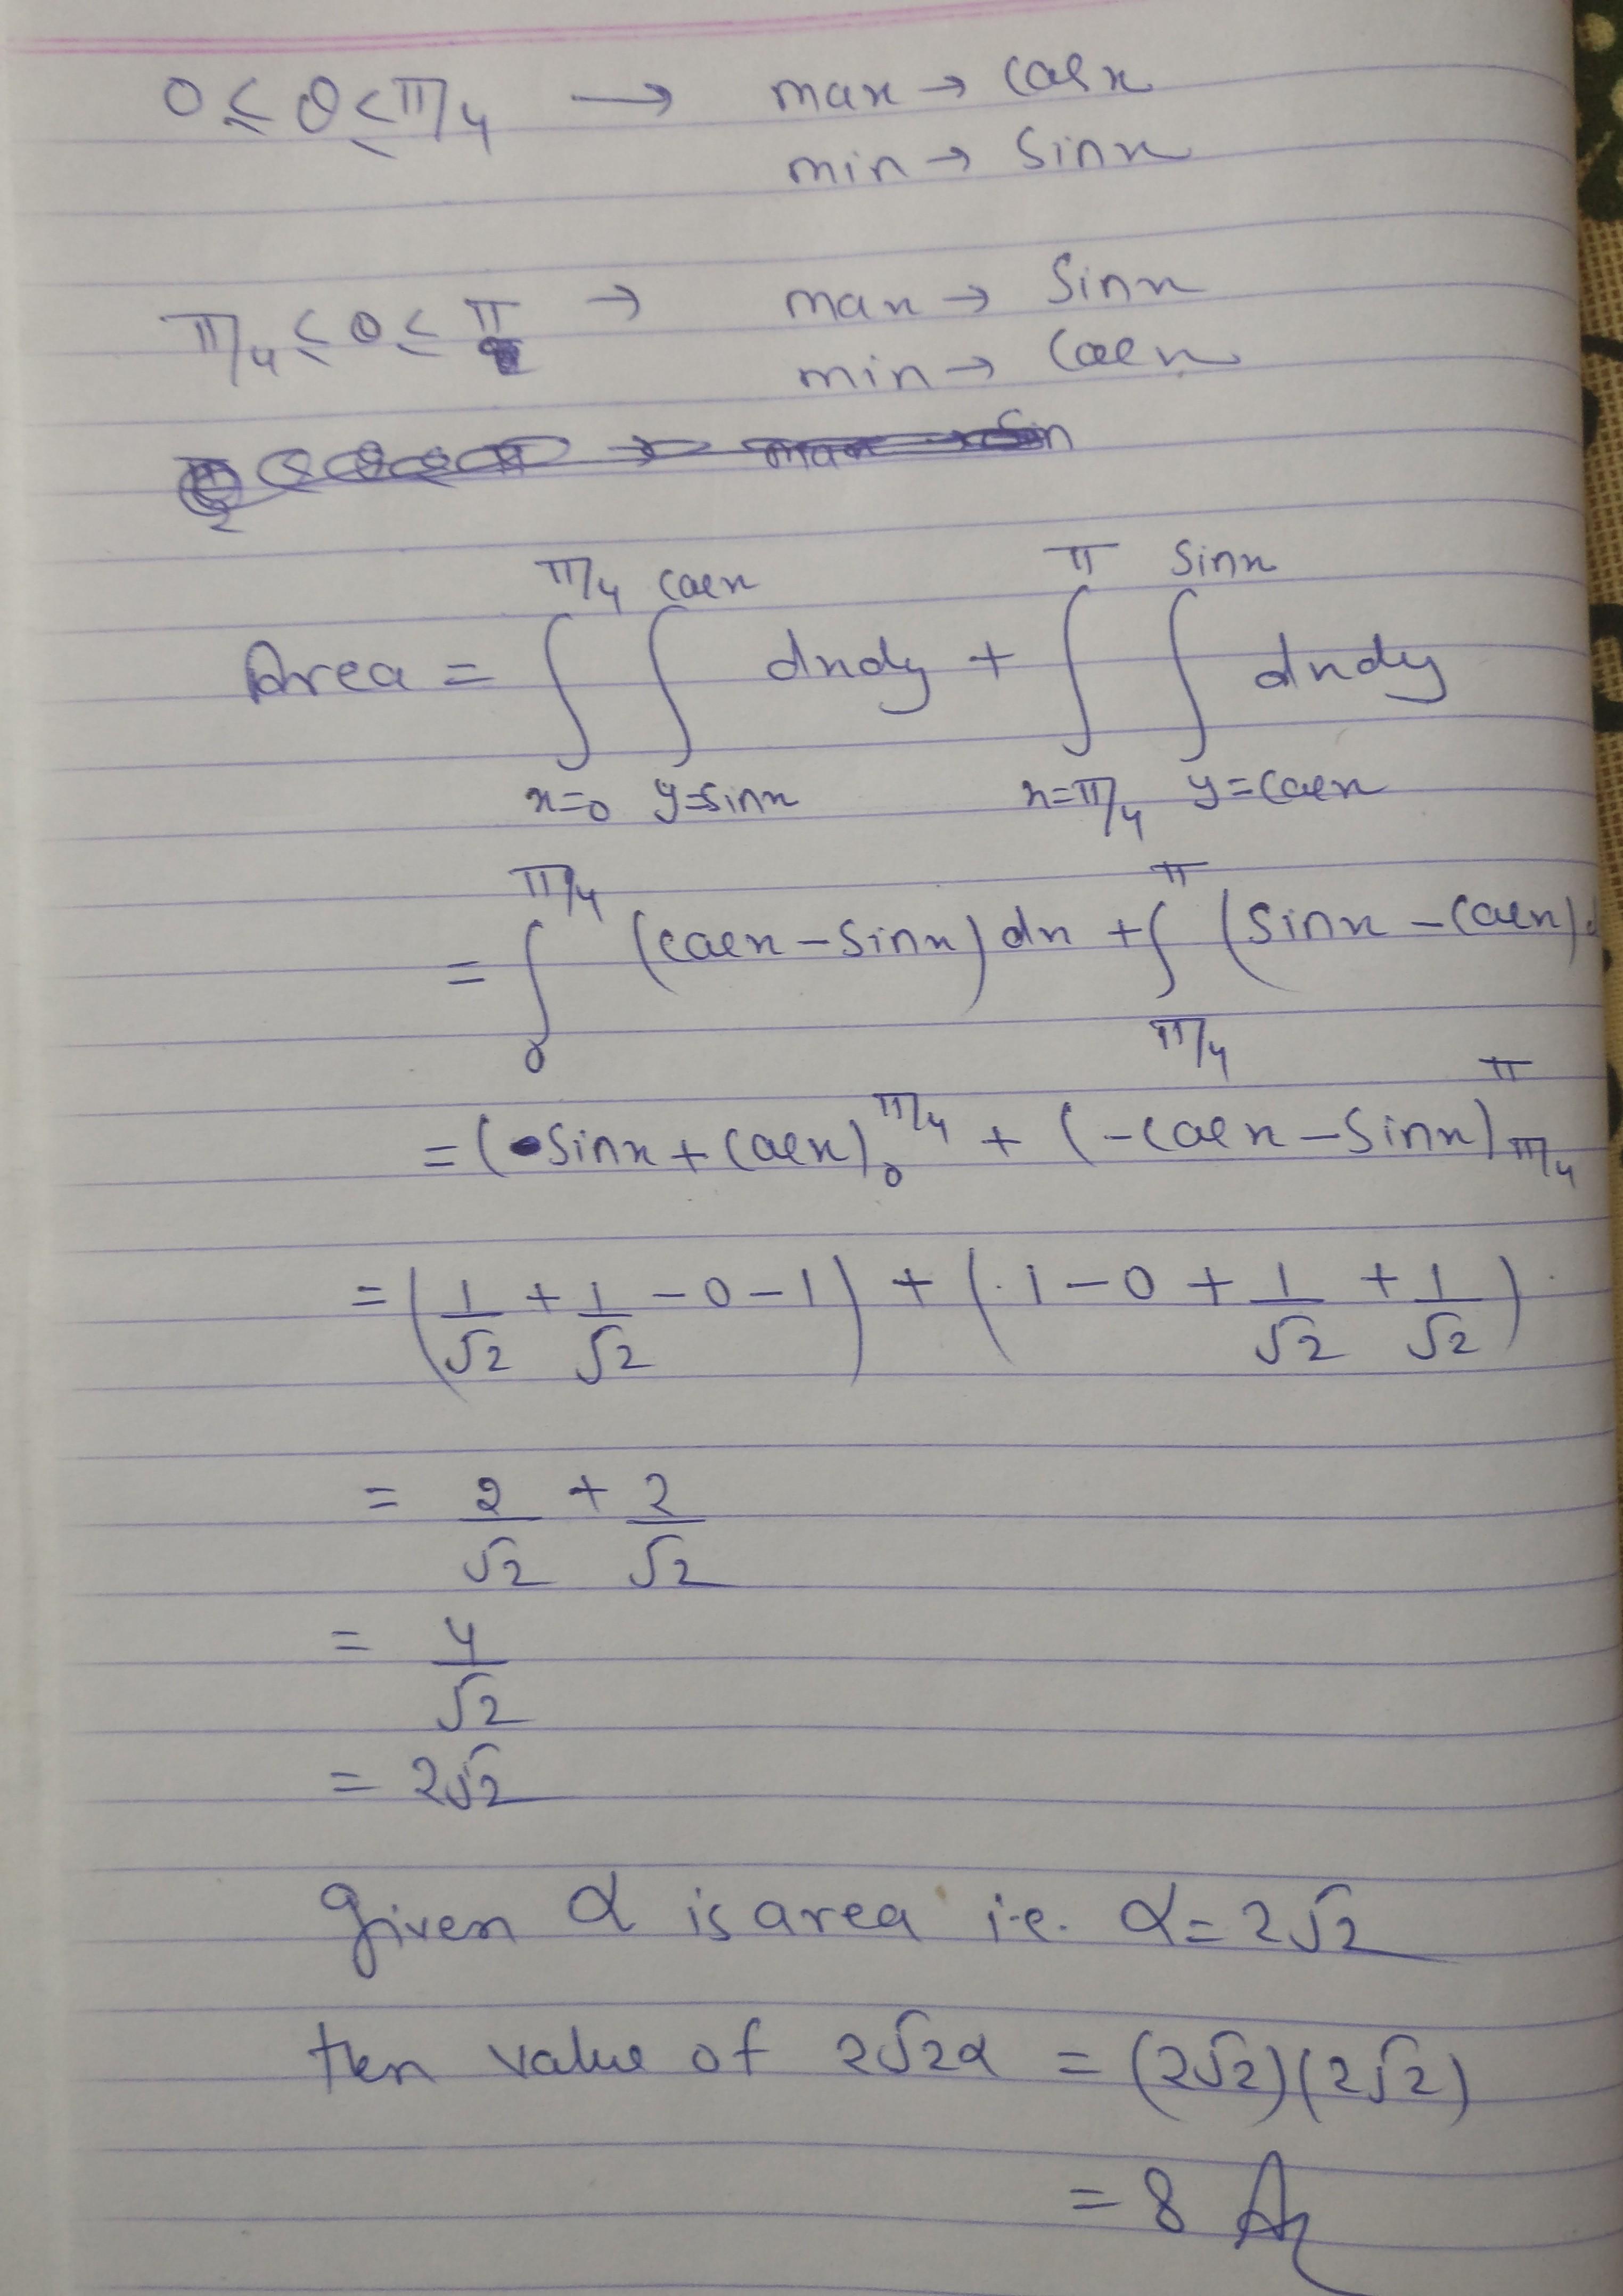 0 ≤ θ ≤ π/4 → max → cosx
min → sinx
π/4 ≤ θ ≤ π → max → sinx
min → cosx
Area = ∫_{x=0}^{π/4} ∫_{y=sinx}^{cosx} dxdy + ∫_{x=π/4}^{π} ∫_{y=cosx}^{sinx} dxdy
= ∫_0^{π/4} (cosx - sinx) dx + ∫_{π/4}^{π} (sinx - cosx)
= (sinx + cosx)_0^{π/4} + (-cosx - sinx)_{π/4}^{π}
= (1/√2 + 1/√2 - 0 - 1) + (1 - 0 + 1/√2 + 1/√2)
= 2/√2 + 2/√2
= 4/√2
= 2√2
given α is area i.e. α = 2√2
then value of 2√2α = (2√2)(2√2)
= 8